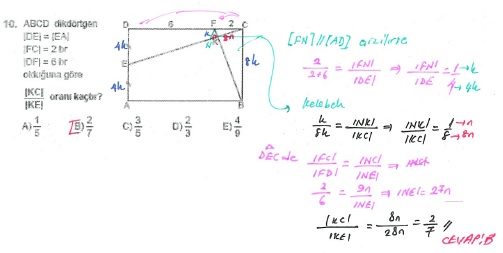 10. ABCD dikdörtgen
|DE| = |EA|
|FC| = 2 br
|DF| = 6 br
olduğuna göre
|KC| / |KE| oranı kaçtır?
A) 1/5 B) 2/7 C) 3/5 D) 2/3 E) 4/9
D 6 F 2 C
4k k 8n
E N K 8k
4k
A B
[FN] // [AD] çizilirse
2/(2+6) = |FN|/|DE| ⇒ |FN|/|DE = 1/4 → k → 4k
→ kelebek
k/8k = |NK|/|KC| ⇒ |NK|/|KC| = 1/8 → n → 8n
DEC de |FC|/|FD| = |NC|/|NE| ⇒
2/6 = 9n/|NE| ⇒ |NE| = 27n
|KC|/|KE| = 8n/28n = 2/7 //
CEVAP: B